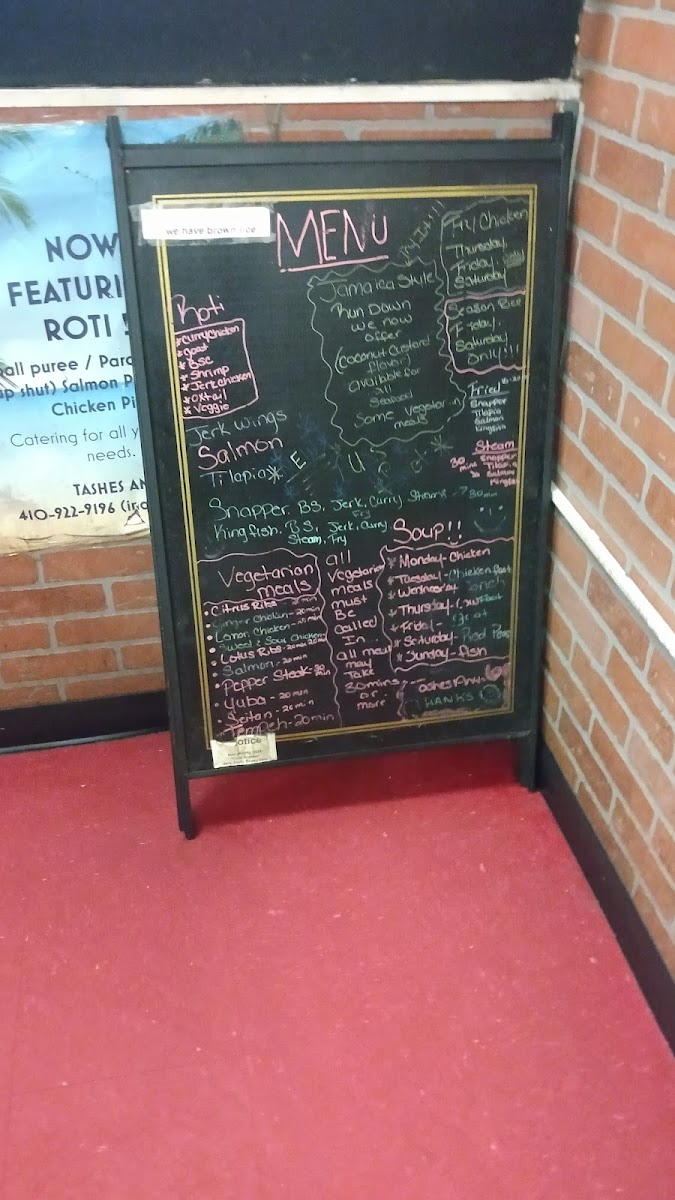 NOW
FEATURI
ROTI !
all puree / Para
up shut) Salmon P
Chicken Pi
Catering for all y
needs.
TASHES AN
410-922-9196
we have brown rice
MENU
Try It!!!!
Roti
* Curry Chicken
* goat
* BSC
* Shrimp
* Jerk chicken
* oxtail
* Veggie
Jamaica Style
Run Down
we now
offer
(Coconut Custard
flavor)
available for
all
Seafood
Some Vegetarian
meals
Fry Chicken
Thursday,
Friday,
Saturday
Season Rice
Friday,
Saturday
Only!!!
Fried
Snapper
Tilapia
Salmon
Kingfish
Steam
30 min
Snapper
Tilapia
Salmon
Kingfish
Jerk Wings
Salmon
Tilapia
Snapper. BS, Jerk, Curry, Steam, Fry 30 min
Kingfish, BS, Jerk, Curry
Steam, Fry
Vegetarian
meals
• Citrus Ribs - 20 min
Ginger Chicken - 20 min
Lemon Chicken
Sweet & Sour Chicken
• Lotus Ribs - 20 min
• Salmon - 20 min
• Pepper Steak - 20 min
• Yuba - 20 min
• Seitan - 20 min
Tempeh - 20 min
all
Vegetarian
meals
must
Be
Called
In
all meals
may
Take
30 mins
or
more
Soup!!
* Monday - Chicken
* Tuesday - Chicken foot
* Wednesday
* Thursday - Cowfoot
* Friday -
* Saturday - Red Peas
* Sunday - Fish
THANKS
Notice